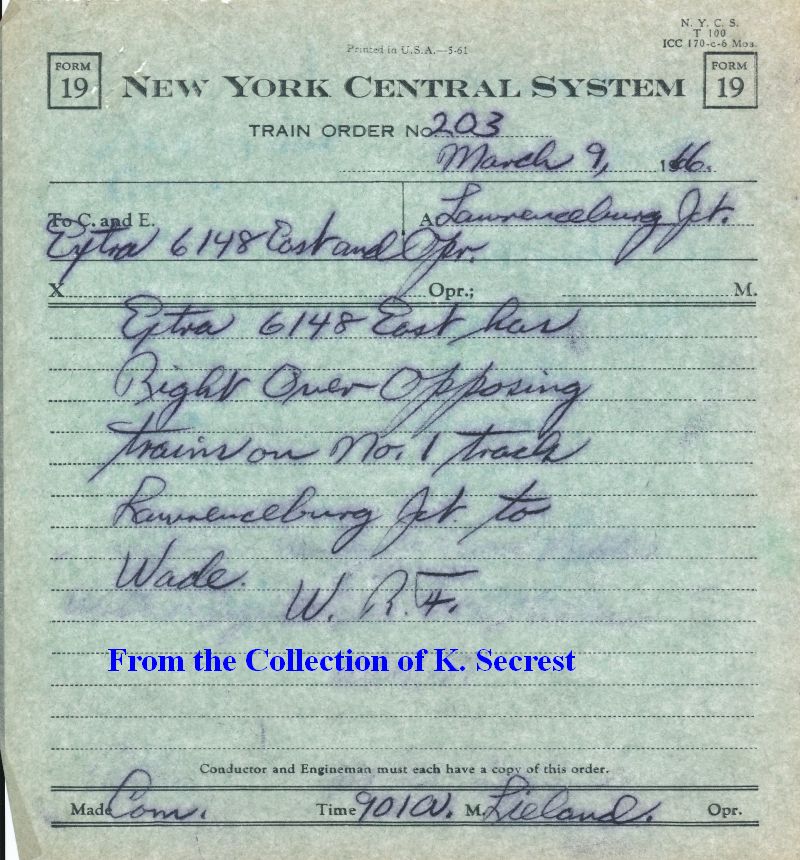 N. Y. C. S.
T 100
ICC 170-c-6 Mos.
Printed in U.S.A.—5-61
FORM 19
NEW YORK CENTRAL SYSTEM
FORM 19
TRAIN ORDER No. 203
March 9, 1966.
To C. and E.
At Lawrenceburg Jct.
Extra 6148 East and Opr.
X
Opr.;
M.
Extra 6148 East has
Right Over Opposing
trains on No. 1 track
Lawrenceburg Jct. to
Wade.
W. R. F.
From the Collection of K. Secrest
Conductor and Engineman must each have a copy of this order.
Made Com. Time 901 A. M. Lieland. Opr.